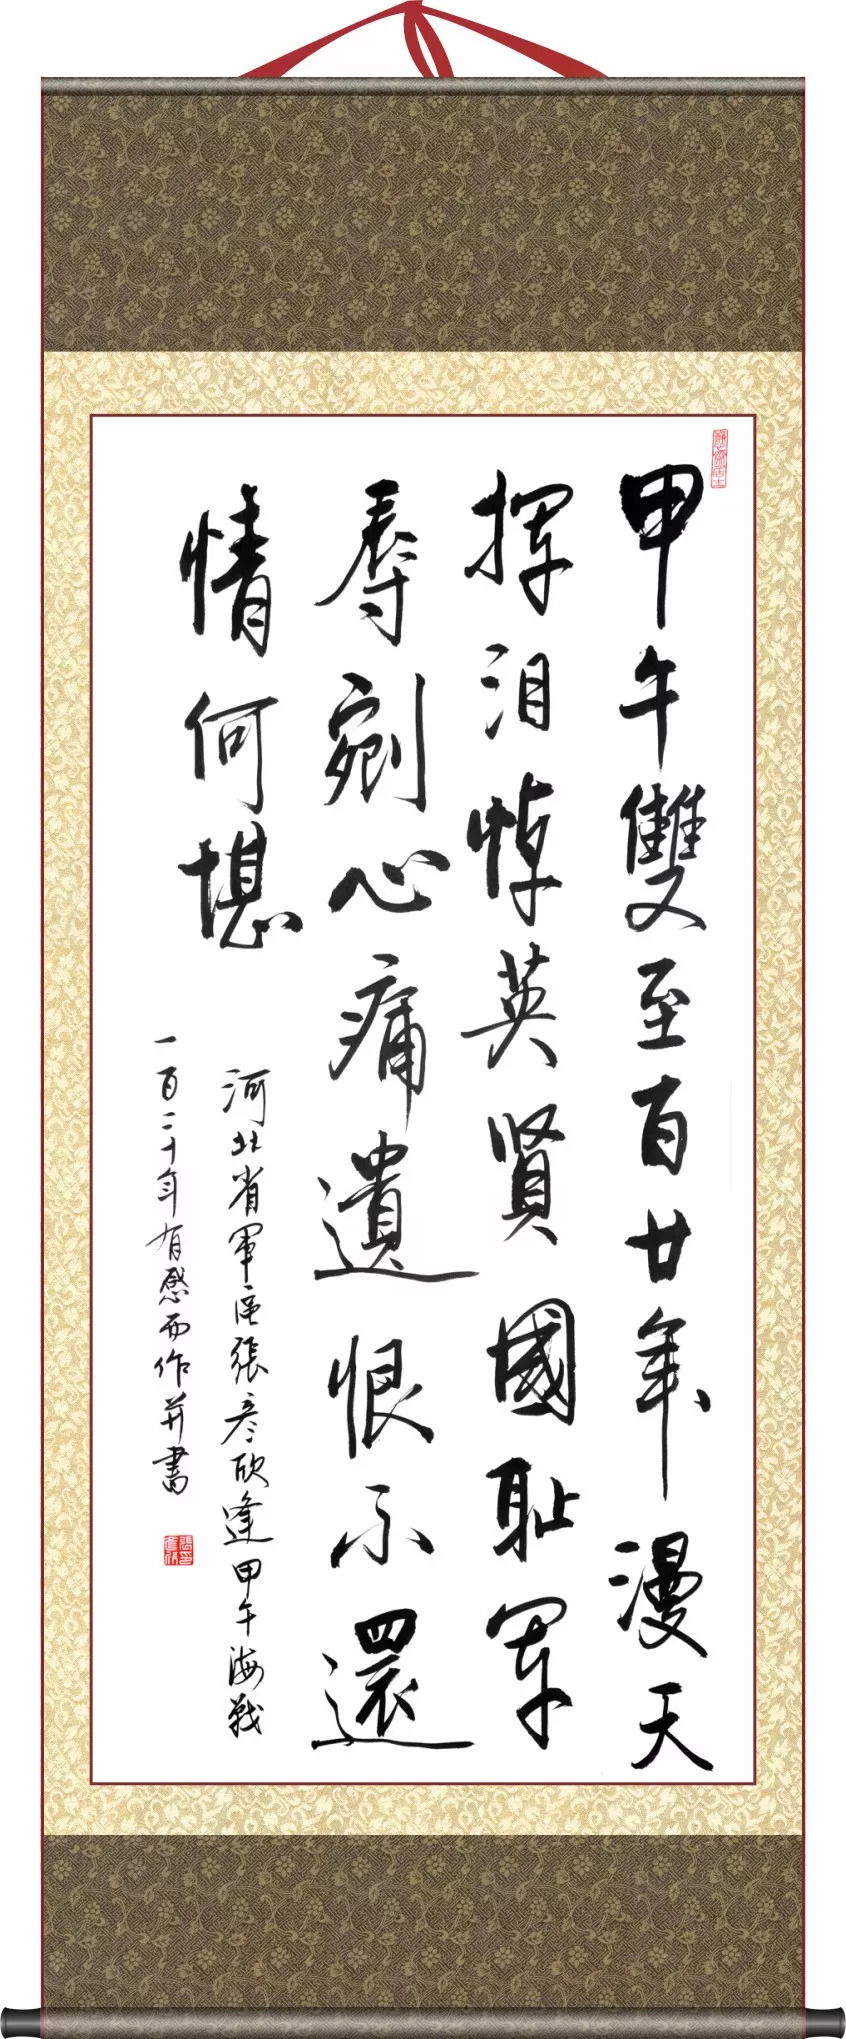 甲午雙至百廿年漫天
揮泪悼英賢國恥軍
辱剜心痛遺恨不還
情何堪
河北省軍區張彦欣逢甲午海戰
一百二十年有感而作并書